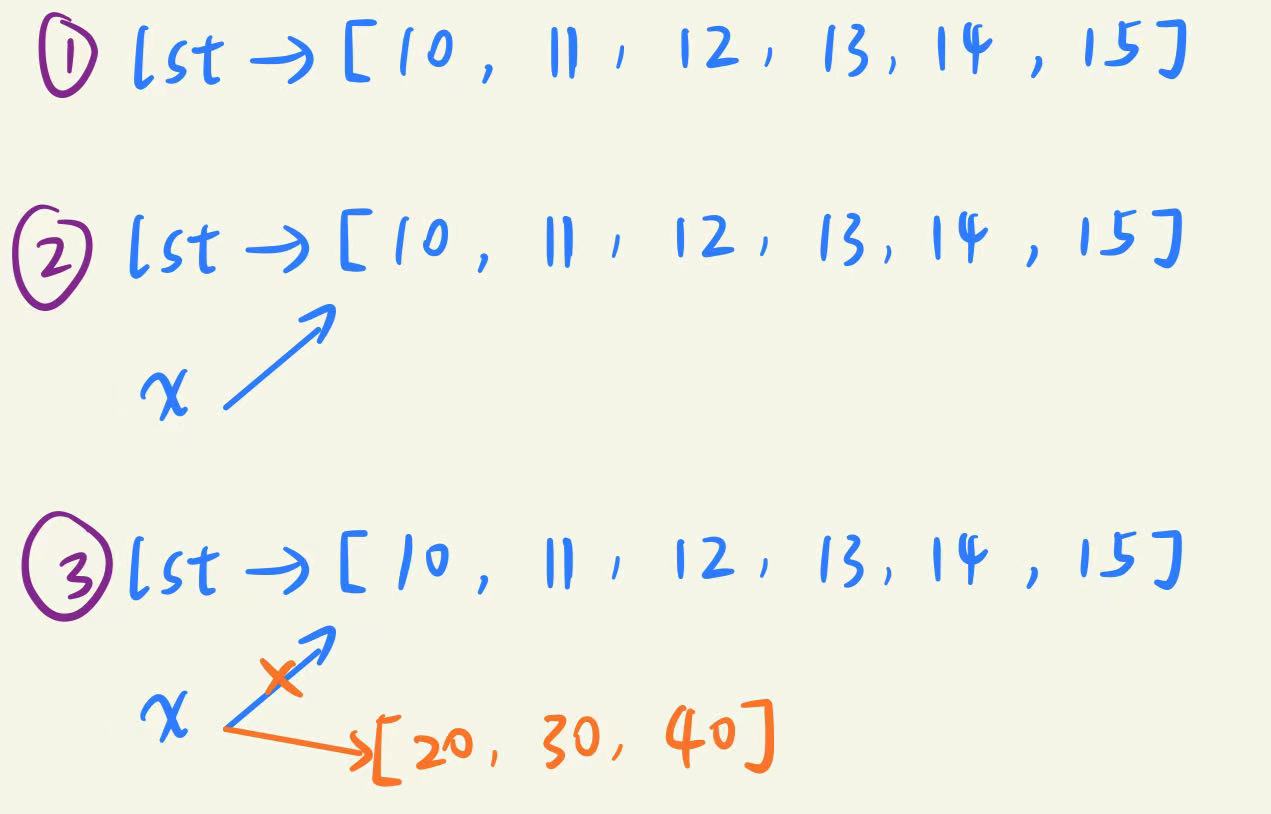 ① lst → [10, 11, 12, 13, 14, 15]
② lst → [10, 11, 12, 13, 14, 15]
x
③ lst → [10, 11, 12, 13, 14, 15]
x → [20, 30, 40]